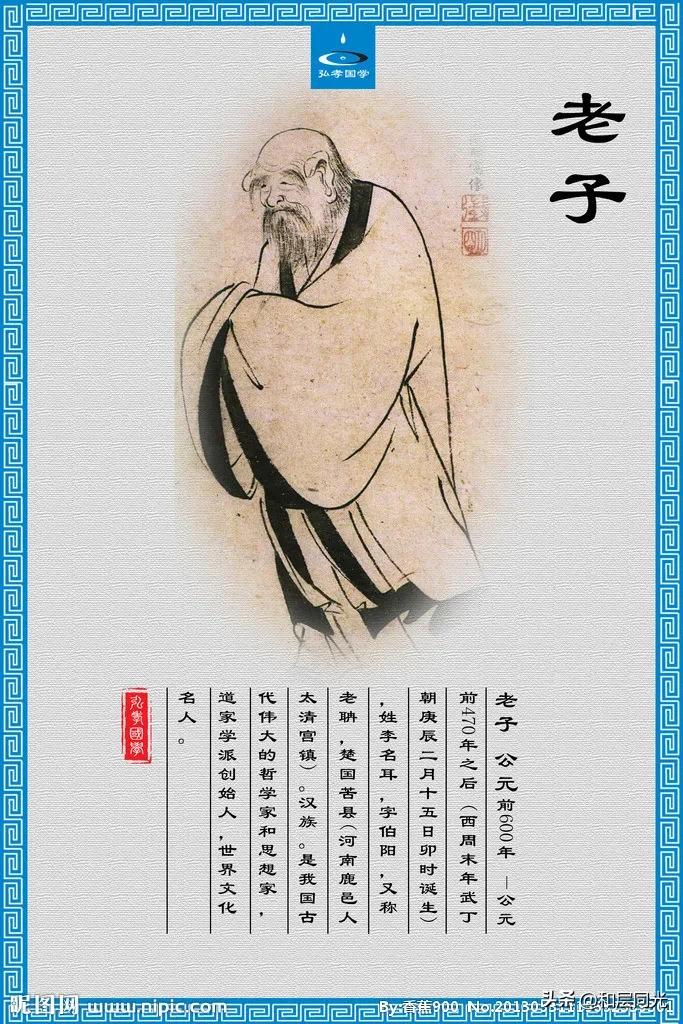 弘孝国学
老子
老子 公元前600年 —公元
前470年之后（西周末年武丁
朝庚辰二月十五日卯时诞生）
，姓李名耳，字伯阳，又称
老聃，楚国苦县（河南鹿邑人
太清宫镇）。汉族。是我国古
代伟大的哲学家和思想家，
道家学派创始人，世界文化
名人。
弘孝國學
昵图网 www.nipic.com
By:香蕉900
头条 @和层同光